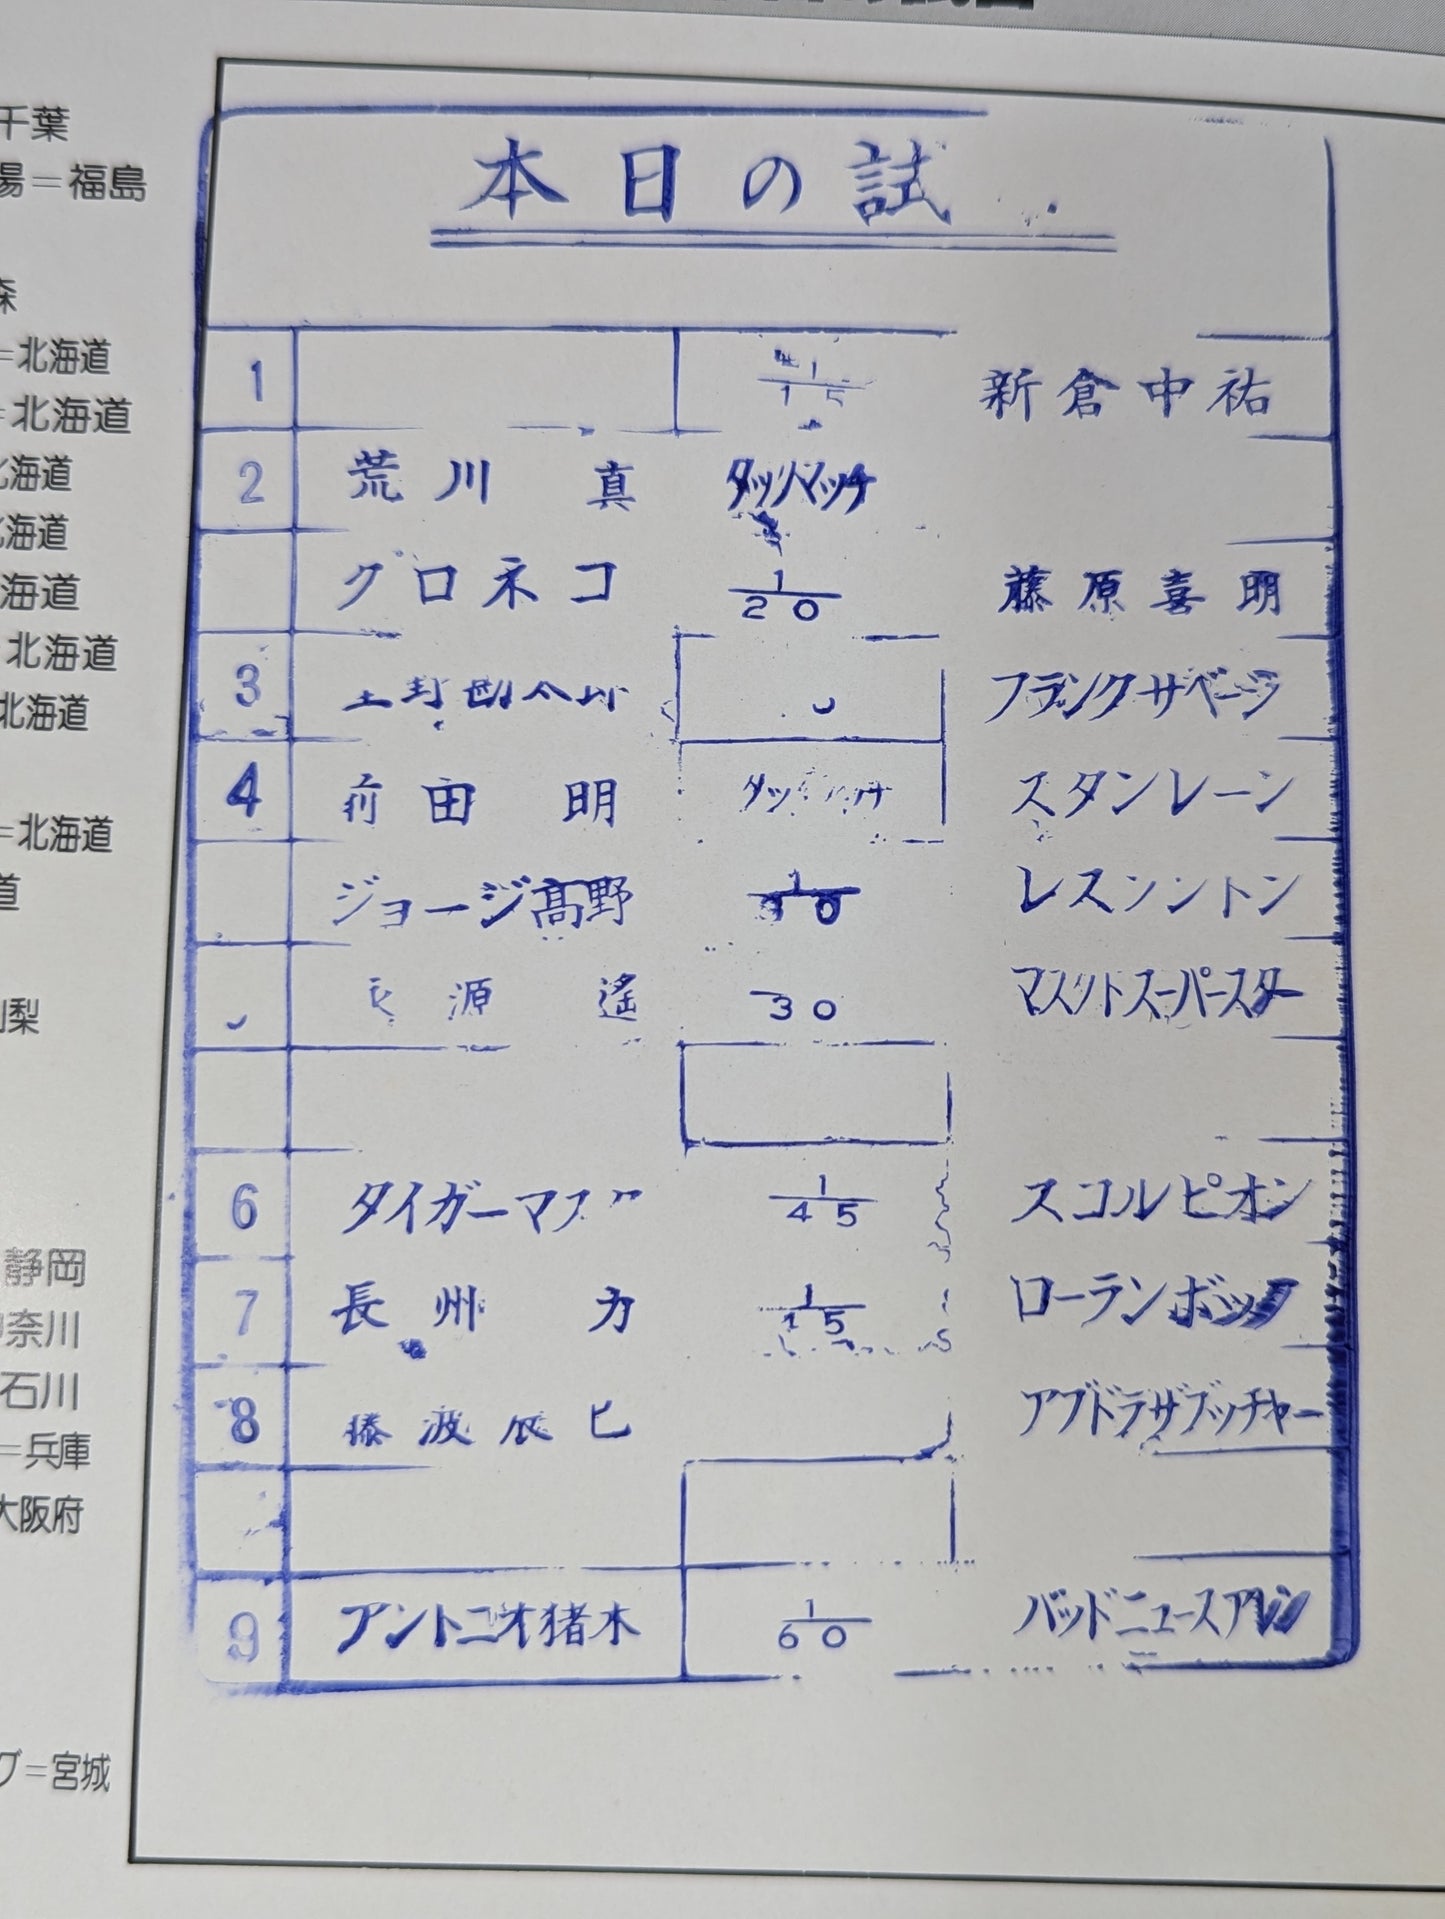 千葉
場=福島
森
=北海道
=北海道
北海道
北海道
海道
北海道
北海道
=北海道
道
梨
静岡
奈川
石川
=兵庫
大阪府
グ=宮城
本日の試
1 1/15 新倉中祐
2 荒川 真 タッグマッチ
クロネコ 1/20 藤原喜明
3 フランクサベージ
4 前田 明 スタンレーン
ジョージ高野 1/30 レスソントン
源 遙 30 マスクトスーパースター
6 タイガーマス 1/45 スコルピオン
7 長州 力 1/15 ローランボック
8 藤波辰巳 アブドラザブッチャー
9 アントニオ猪木 1/60 バッドニュースアレン